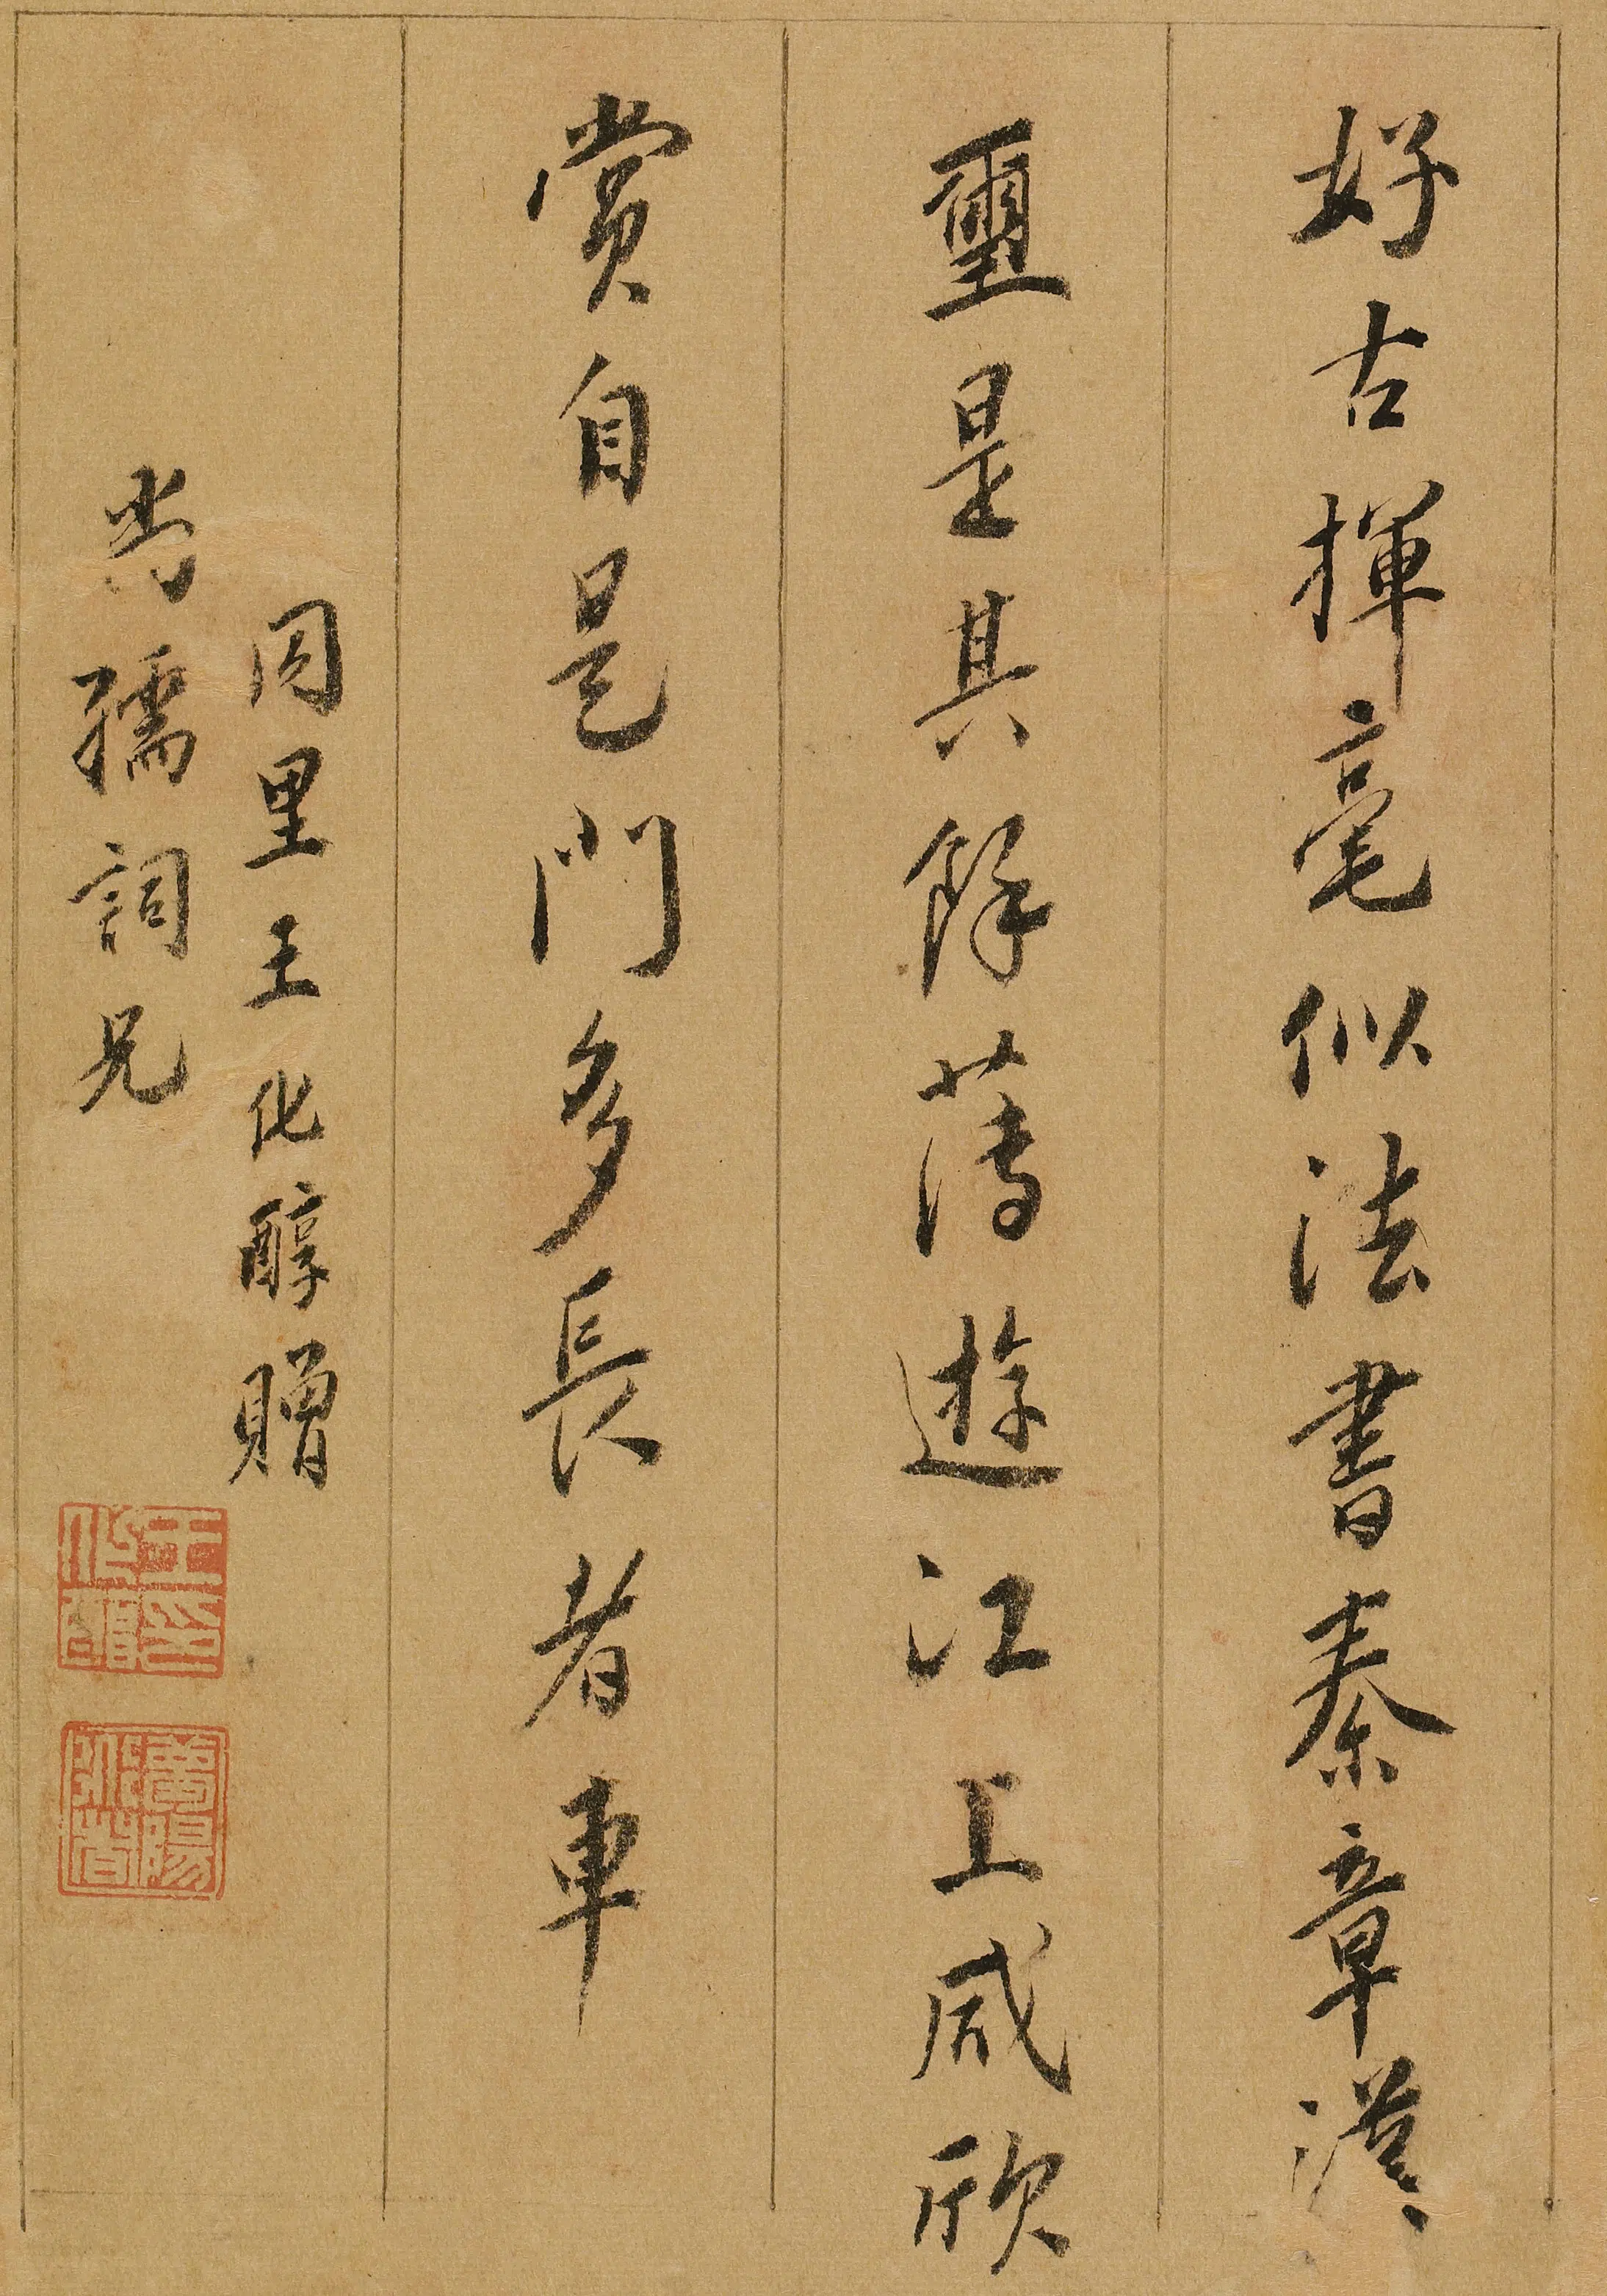 好古揮毫似法書秦章漢
璽是其餘薄遊江上咸欣
賞自是門多長者車
同里王化醇贈
尚孺詞兄